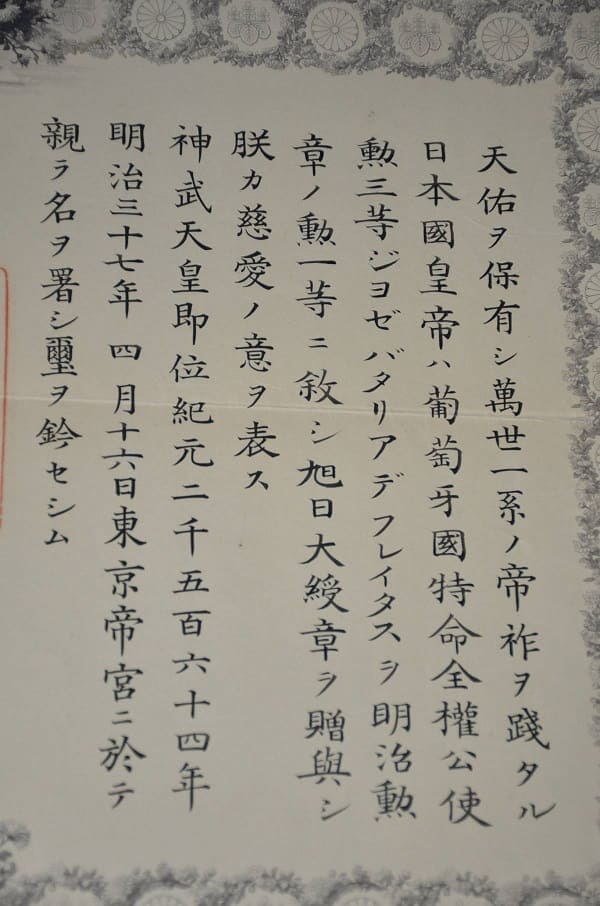 天佑ヲ保有シ萬世一系ノ帝祚ヲ踐タル
日本國皇帝ハ葡萄牙國特命全權公使
勳三等ジヨゼバタリアデフレイタスヲ明治勳
章ノ勳一等ニ敘シ旭日大綬章ヲ贈與シ
朕カ慈愛ノ意ヲ表ス
神武天皇即位紀元二千五百六十四年
明治三十七年四月十六日東京帝宮ニ於テ
親ラ名ヲ署シ璽ヲ鈐セシム